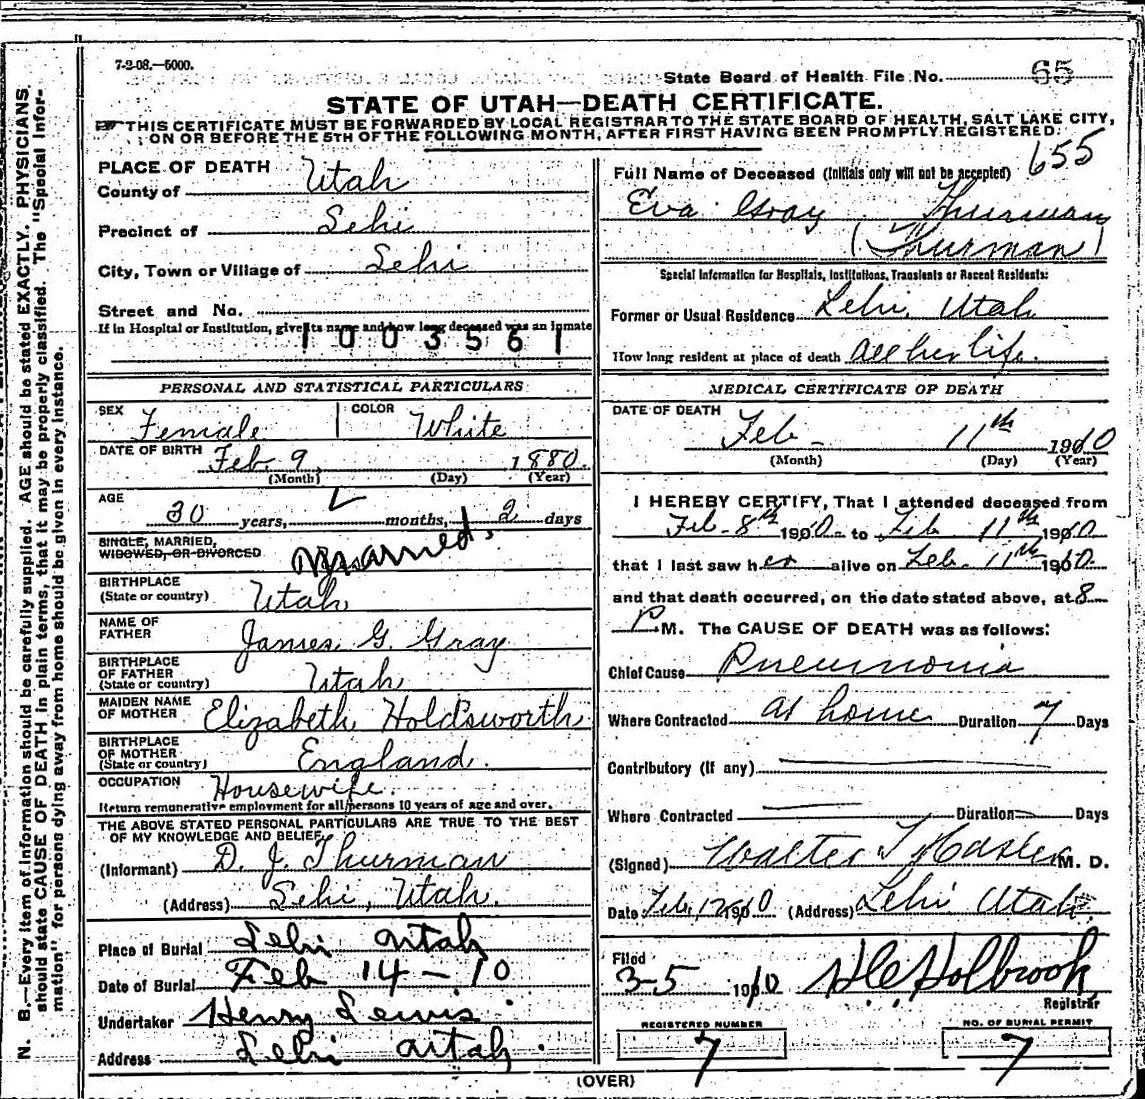 7-2-08.—5000.
State Board of Health File No. 65
STATE OF UTAH—DEATH CERTIFICATE.
THIS CERTIFICATE MUST BE FORWARDED BY LOCAL REGISTRAR TO THE STATE BOARD OF HEALTH, SALT LAKE CITY,
ON OR BEFORE THE 5TH OF THE FOLLOWING MONTH, AFTER FIRST HAVING BEEN PROMPTLY REGISTERED.
655
N. B.—Every item of information should be carefully supplied. AGE should be stated EXACTLY. PHYSICIANS
should state CAUSE OF DEATH in plain terms, that it may be properly classified. The "Special Infor-
mation" for persons dying away from home should be given in every instance.
PLACE OF DEATH
County of Utah
Precinct of Lehi
City, Town or Village of Lehi
Street and No.
If in Hospital or Institution, give its name and how long deceased was an inmate
1003561
PERSONAL AND STATISTICAL PARTICULARS
SEX Female COLOR White
DATE OF BIRTH Feb 9, 1880.
(Month) (Day) (Year)
AGE
30 years, months, 2 days
SINGLE, MARRIED,
WIDOWED, OR DIVORCED Married.
BIRTHPLACE
(State or country) Utah
NAME OF
FATHER James G. Gray
BIRTHPLACE
OF FATHER
(State or country) Utah
MAIDEN NAME
OF MOTHER Elizabeth Holdsworth
BIRTHPLACE
OF MOTHER
(State or country) England.
OCCUPATION Housewife.
Return remunerative employment for all persons 10 years of age and over.
THE ABOVE STATED PERSONAL PARTICULARS ARE TRUE TO THE BEST
OF MY KNOWLEDGE AND BELIEF.
(Informant) D. J. Thurman
(Address) Lehi, Utah.
Place of Burial Lehi Utah
Date of Burial Feb 14 - 10
Undertaker Henry Lewis
Address Lehi Utah.
Full Name of Deceased (Initials only will not be accepted)
Eva Gray Thurman
(Thurman)
Special Information for Hospitals, Institutions, Transients or Recent Residents:
Former or Usual Residence Lehi, Utah
How long resident at place of death all her life.
MEDICAL CERTIFICATE OF DEATH
DATE OF DEATH
Feb- 11th 1910
(Month) (Day) (Year)
I HEREBY CERTIFY, That I attended deceased from
Feb-8th 1910 to Feb 11th 1910
that I last saw her alive on Feb-11th 1910.
and that death occurred, on the date stated above, at 8
P M. The CAUSE OF DEATH was as follows:
Chief Cause Pneumonia
Where Contracted at home Duration 7 Days
Contributory (If any)
Where Contracted Duration Days
(Signed) Walter T Hasler M. D.
Date Feb 12 1910 (Address) Lehi Utah.
Filed
3-5 1910 H C Holbrook
Registrar
REGISTERED NUMBER
7
NO. OF BURIAL PERMIT
7
(OVER)